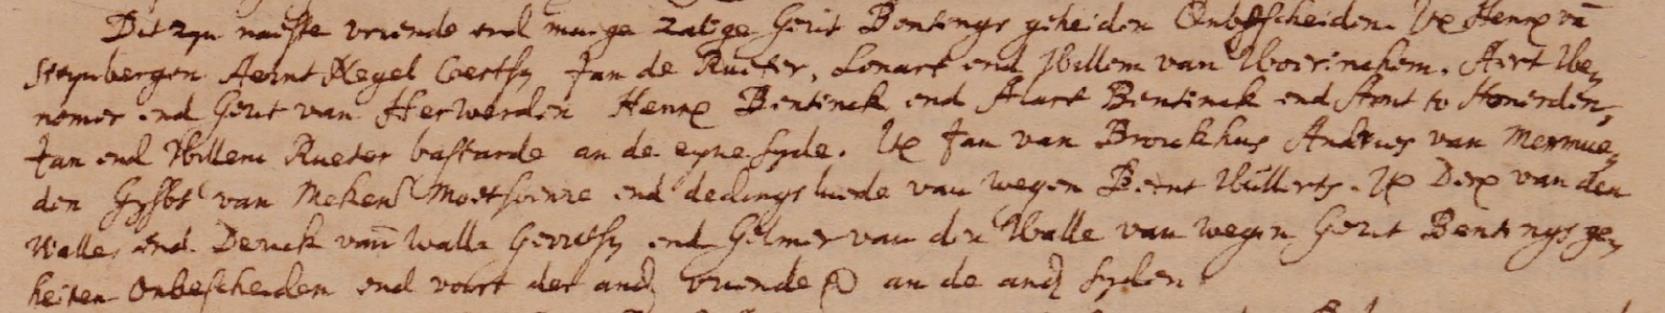 Dit zyn naeste vriende end mage zalige Gerit Bentings geheiten Onbescheiden. Ite Henr van
Steynbergen Aernt Hegel Evertsz Jan de Rueter, Lonart end Willem van Woerinchem. Aert We,
nemer end Gerit van Herwerden Henr Bentinck end Alart Bentinck end Aernt to
Jan end Willem Rueter bastarde an de eyne syde. Ite Jan van Brockhus Andries van Mermue,
den Gysbt van Meken Moetsoenre end dedings luede van wegen Bernt Willerts. Ite Derc van den
Walle, end Derick van Walle Gerritsz end Gelmer van den Walle van wegen Gerit Bentings ge,
heiten Onbescheiden end voirt der and vriende an de and syden